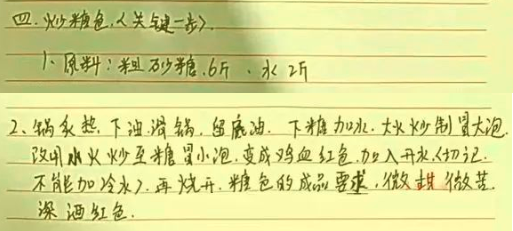 四. 炒糖色.〈关键一步〉.
1、原料：粗砂糖.6斤 、水 2斤
2、锅炙热.下油滑锅.留底油. 下糖加水.大火炒制冒大泡.
改用小火炒至糖冒小泡.变成鸡血红色.加入开水〈切记.
不能加冷水〉.再烧开.糖色的成品要求.微甜微苦.
深酒红色.